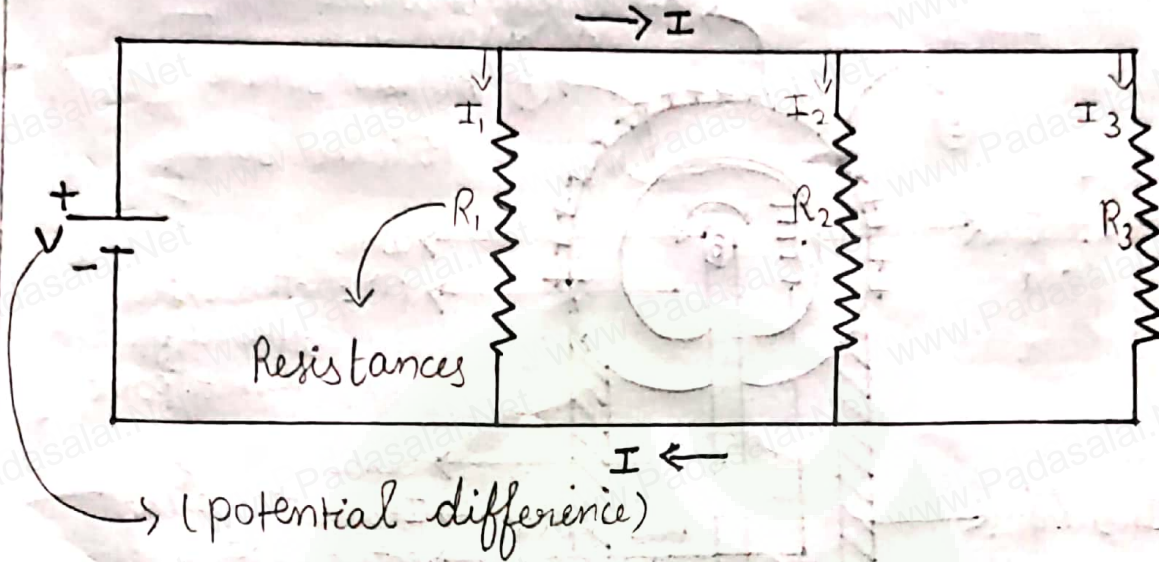 → I
I₁
I₂
I₃
+
V
-
R₁
R₂
R₃
Resistances
I ←
(potential difference)
www.Padasalai.Net